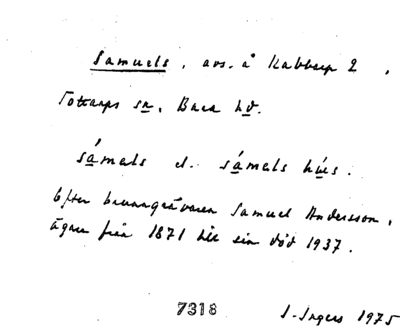 Samuels, avs. å Kabbarp 2,
Tottarps sn, Bara hd.
sámals el. sámels hús.
Efter brunnsgrävaren Samuel Andersson,
ägare från 1871 till sin död 1937.
7318
I. Ingers 1975